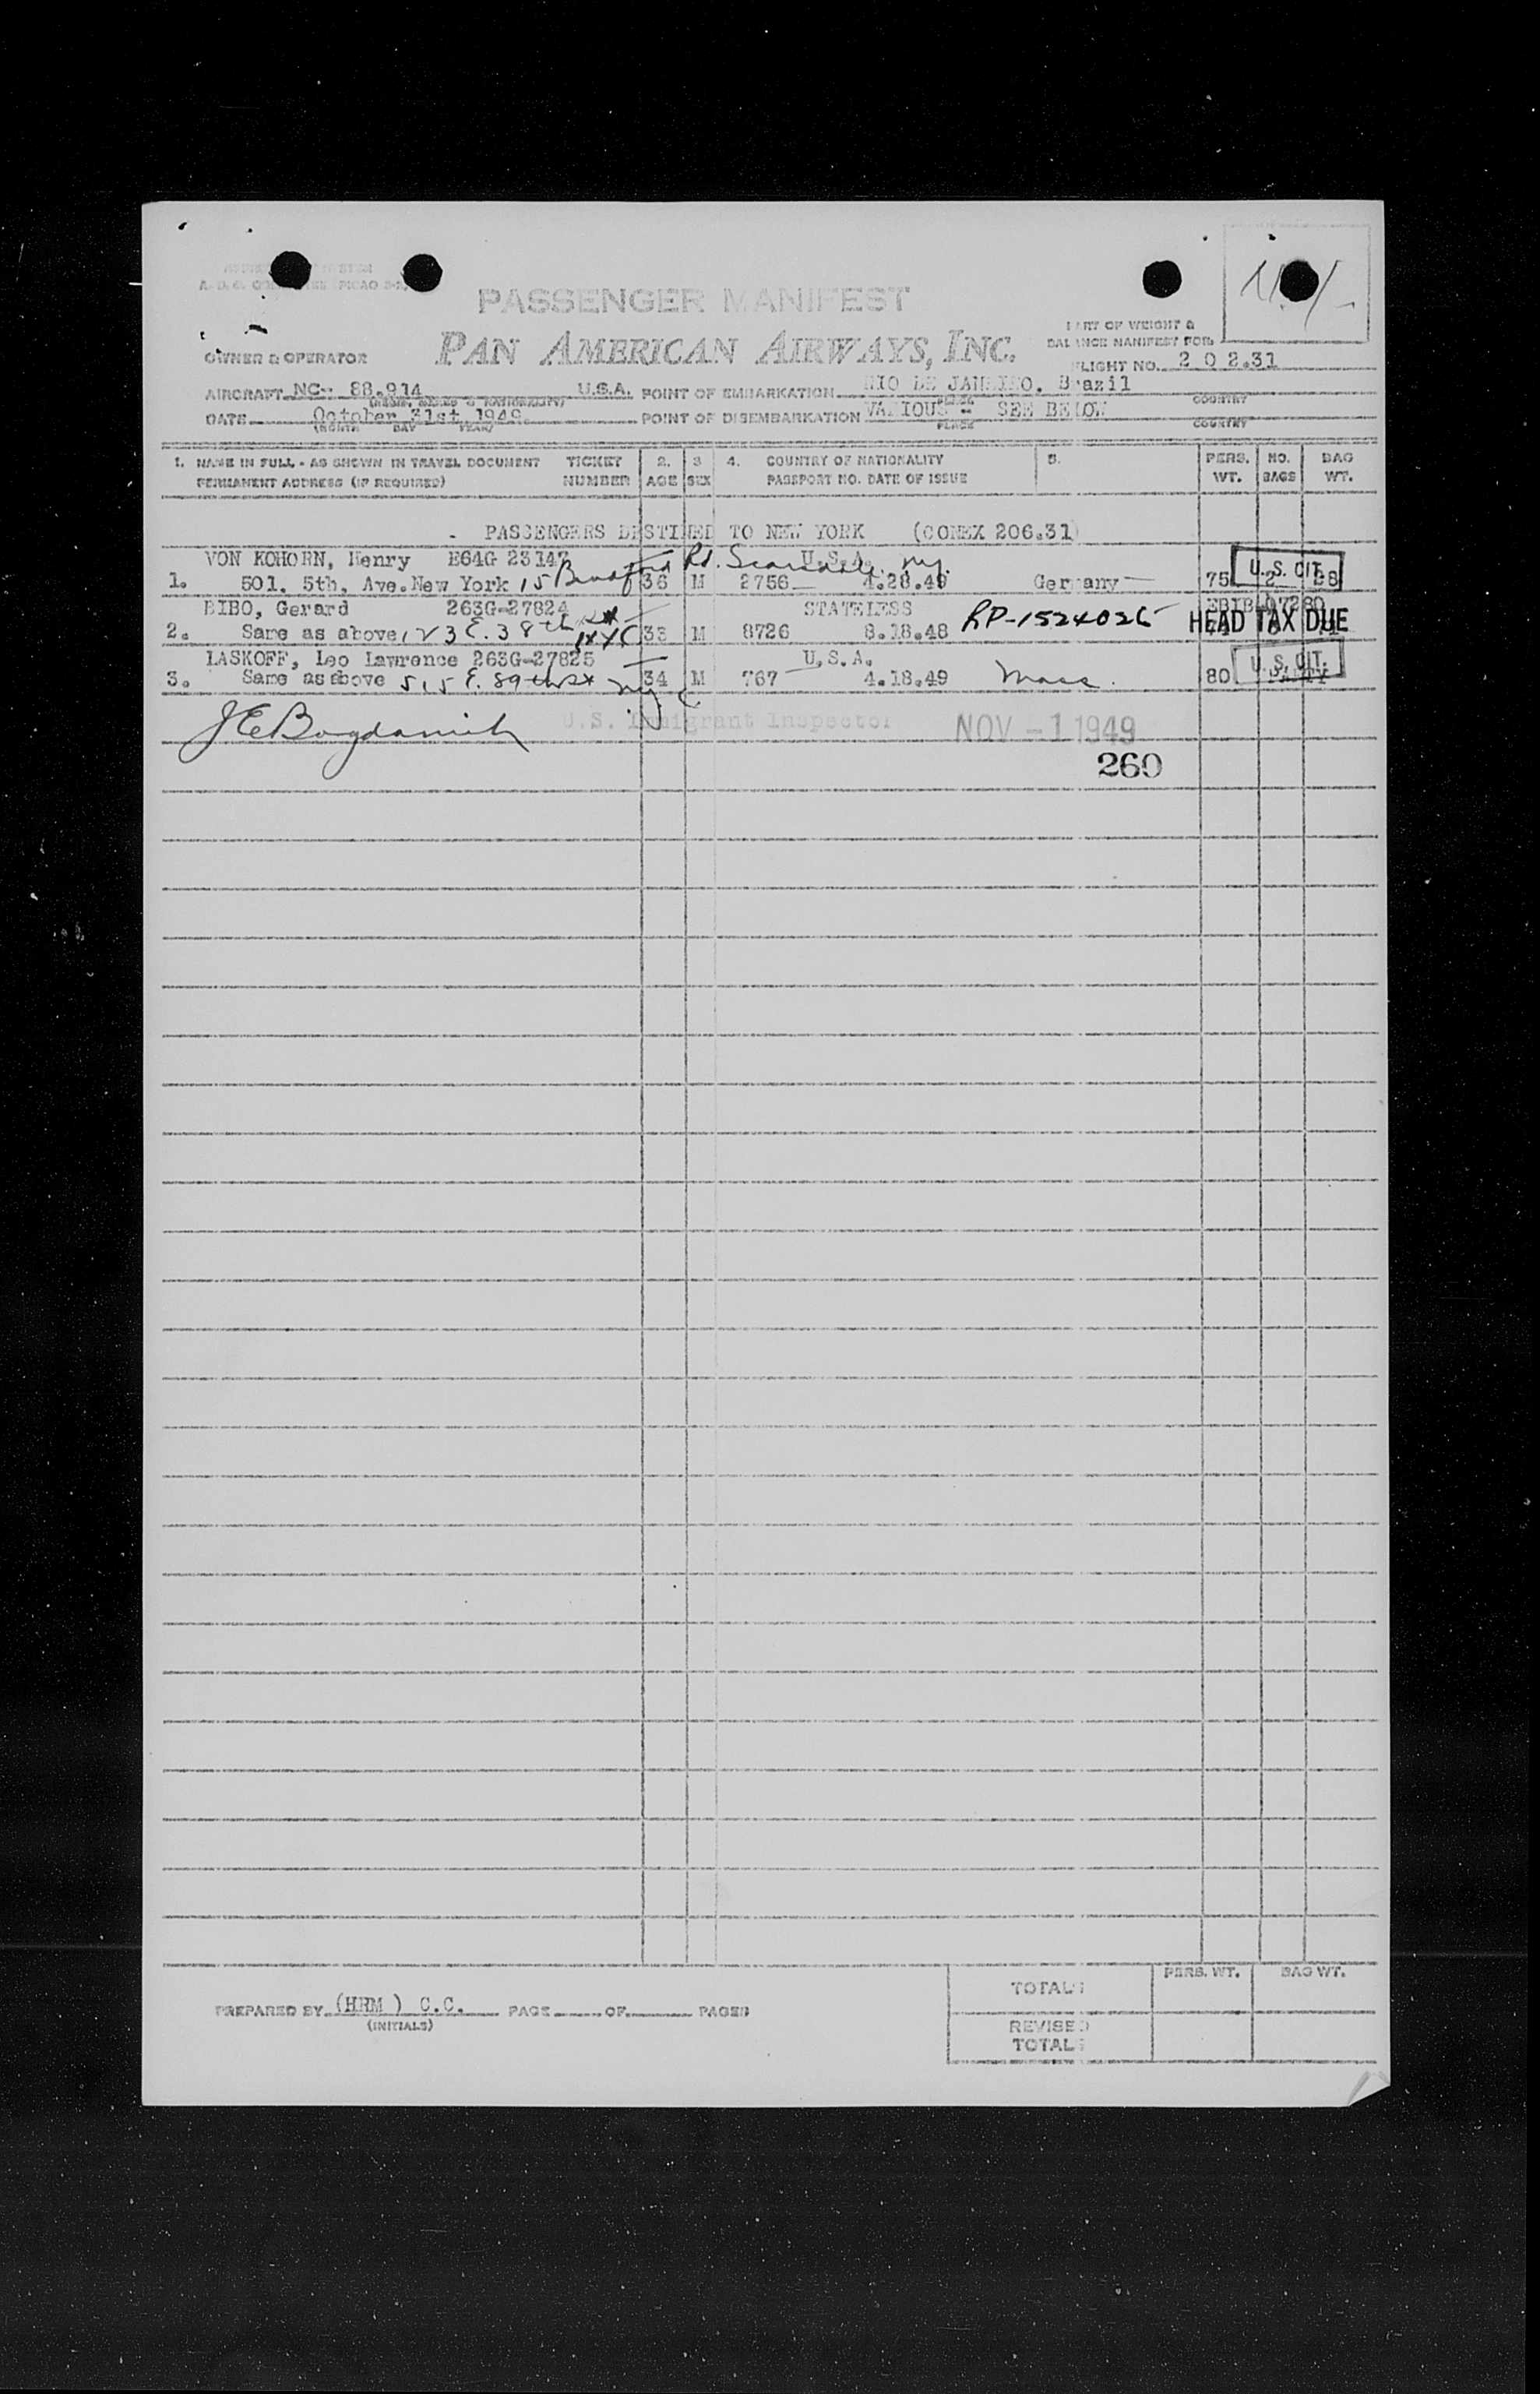 N.Y.
PASSENGER MANIFEST
PART OF WEIGHT &
BALANCE MANIFEST FOR
OWNER & OPERATOR PAN AMERICAN AIRWAYS, INC.
FLIGHT NO. 2 0 2.31
AIRCRAFT NC- 88.914 U.S.A. POINT OF EMBARKATION RIO DE JANEIRO, Brazil
PLACE COUNTRY
DATE October 31st 1949. POINT OF DISEMBARKATION VARIOUS -: SEE BELOW
(MONTH DAY YEAR) PLACE COUNTRY
1. NAME IN FULL - AS SHOWN IN TRAVEL DOCUMENT TICKET 2. 3 4. COUNTRY OF NATIONALITY 5. PERS. NO. BAG
PERMANENT ADDRESS (IF REQUIRED) NUMBER AGE SEX PASSPORT NO. DATE OF ISSUE WT. BAGS WT.
PASSENGERS DESTINED TO NEW YORK (CONEX 206.31)
VON KOHORN, Henry E64G 23147 U.S.A.
1. 501. 5th, Ave. New York 15 Bradford Rd. Scarsdale, N.Y. 36 M 2756 4.28.49 Germany 75 2 U.S. CIT.
BIBO, Gerard 263G-27824 STATELESS
2. Same as above 123 E. 38th St NYC 33 M 8726 8.18.48 RP-1524026 HEAD TAX DUE
LASKOFF, Leo Lawrence 263G-27825 U.S.A.
3. Same as above 515 E. 89th St NYC 34 M 767 4.18.49 Mass. 80 U.S. CIT.
U.S. Immigrant Inspector NOV -1 1949
260
TOTALS PERS. WT. BAG WT.
PREPARED BY (HRM ) C.C. PAGE OF PAGES
(INITIALS)
REVISED
TOTALS